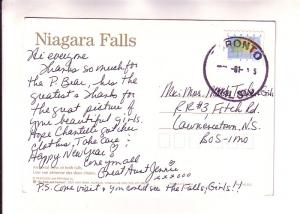 Niagara Falls
Hi everyone
Thanks so much for
the P. Bear, he's the
greatest & thanks for
the great picture of
your beautiful girls.
Hope Chantelle gotcher
clothes, Take care:
Happy New Year!
Love you all
Great Aunt Jennie
xxxooo
P.S. Come visit & you could see the Falls, Girls!!
TORONTO
RR#3
Lawrencetown, N.S.
B0S-1M0